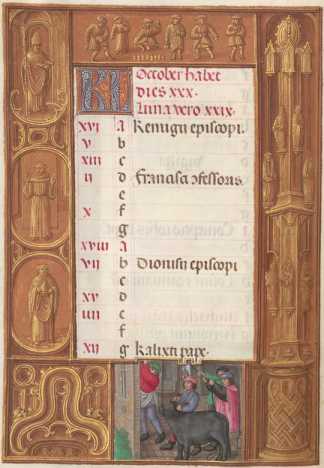 KL October habet
dies xxx.
Luna vero xxix.
xvi A Remigii episcopi.
v b
xiii c
ii d Francisci cōfessoris
e
x f
g
xviii A
vii b Dionisii episcopi
c
xv d
iiii e
f
xii g Kalixti pape.